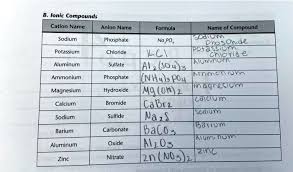 B. Ionic Compounds
Cation Name Anion Name Formula Name of Compound
Sodium Phosphate Na3PO4 Sodium Phosphide
Potassium Chloride KCl Potassium Chloride
Aluminum Sulfate Al2(SO4)3 Aluminum
Ammonium Phosphate (NH4)3PO4 Ammonium
Magnesium Hydroxide Mg(OH)2 magnesium
Calcium Bromide CaBr2 calcium
Sodium Sulfide Na2S Sodium
Barium Carbonate BaCO3 Barium
Aluminum Oxide Al2O3 Aluminum
Zinc Nitrate Zn(NO3)2 zinc